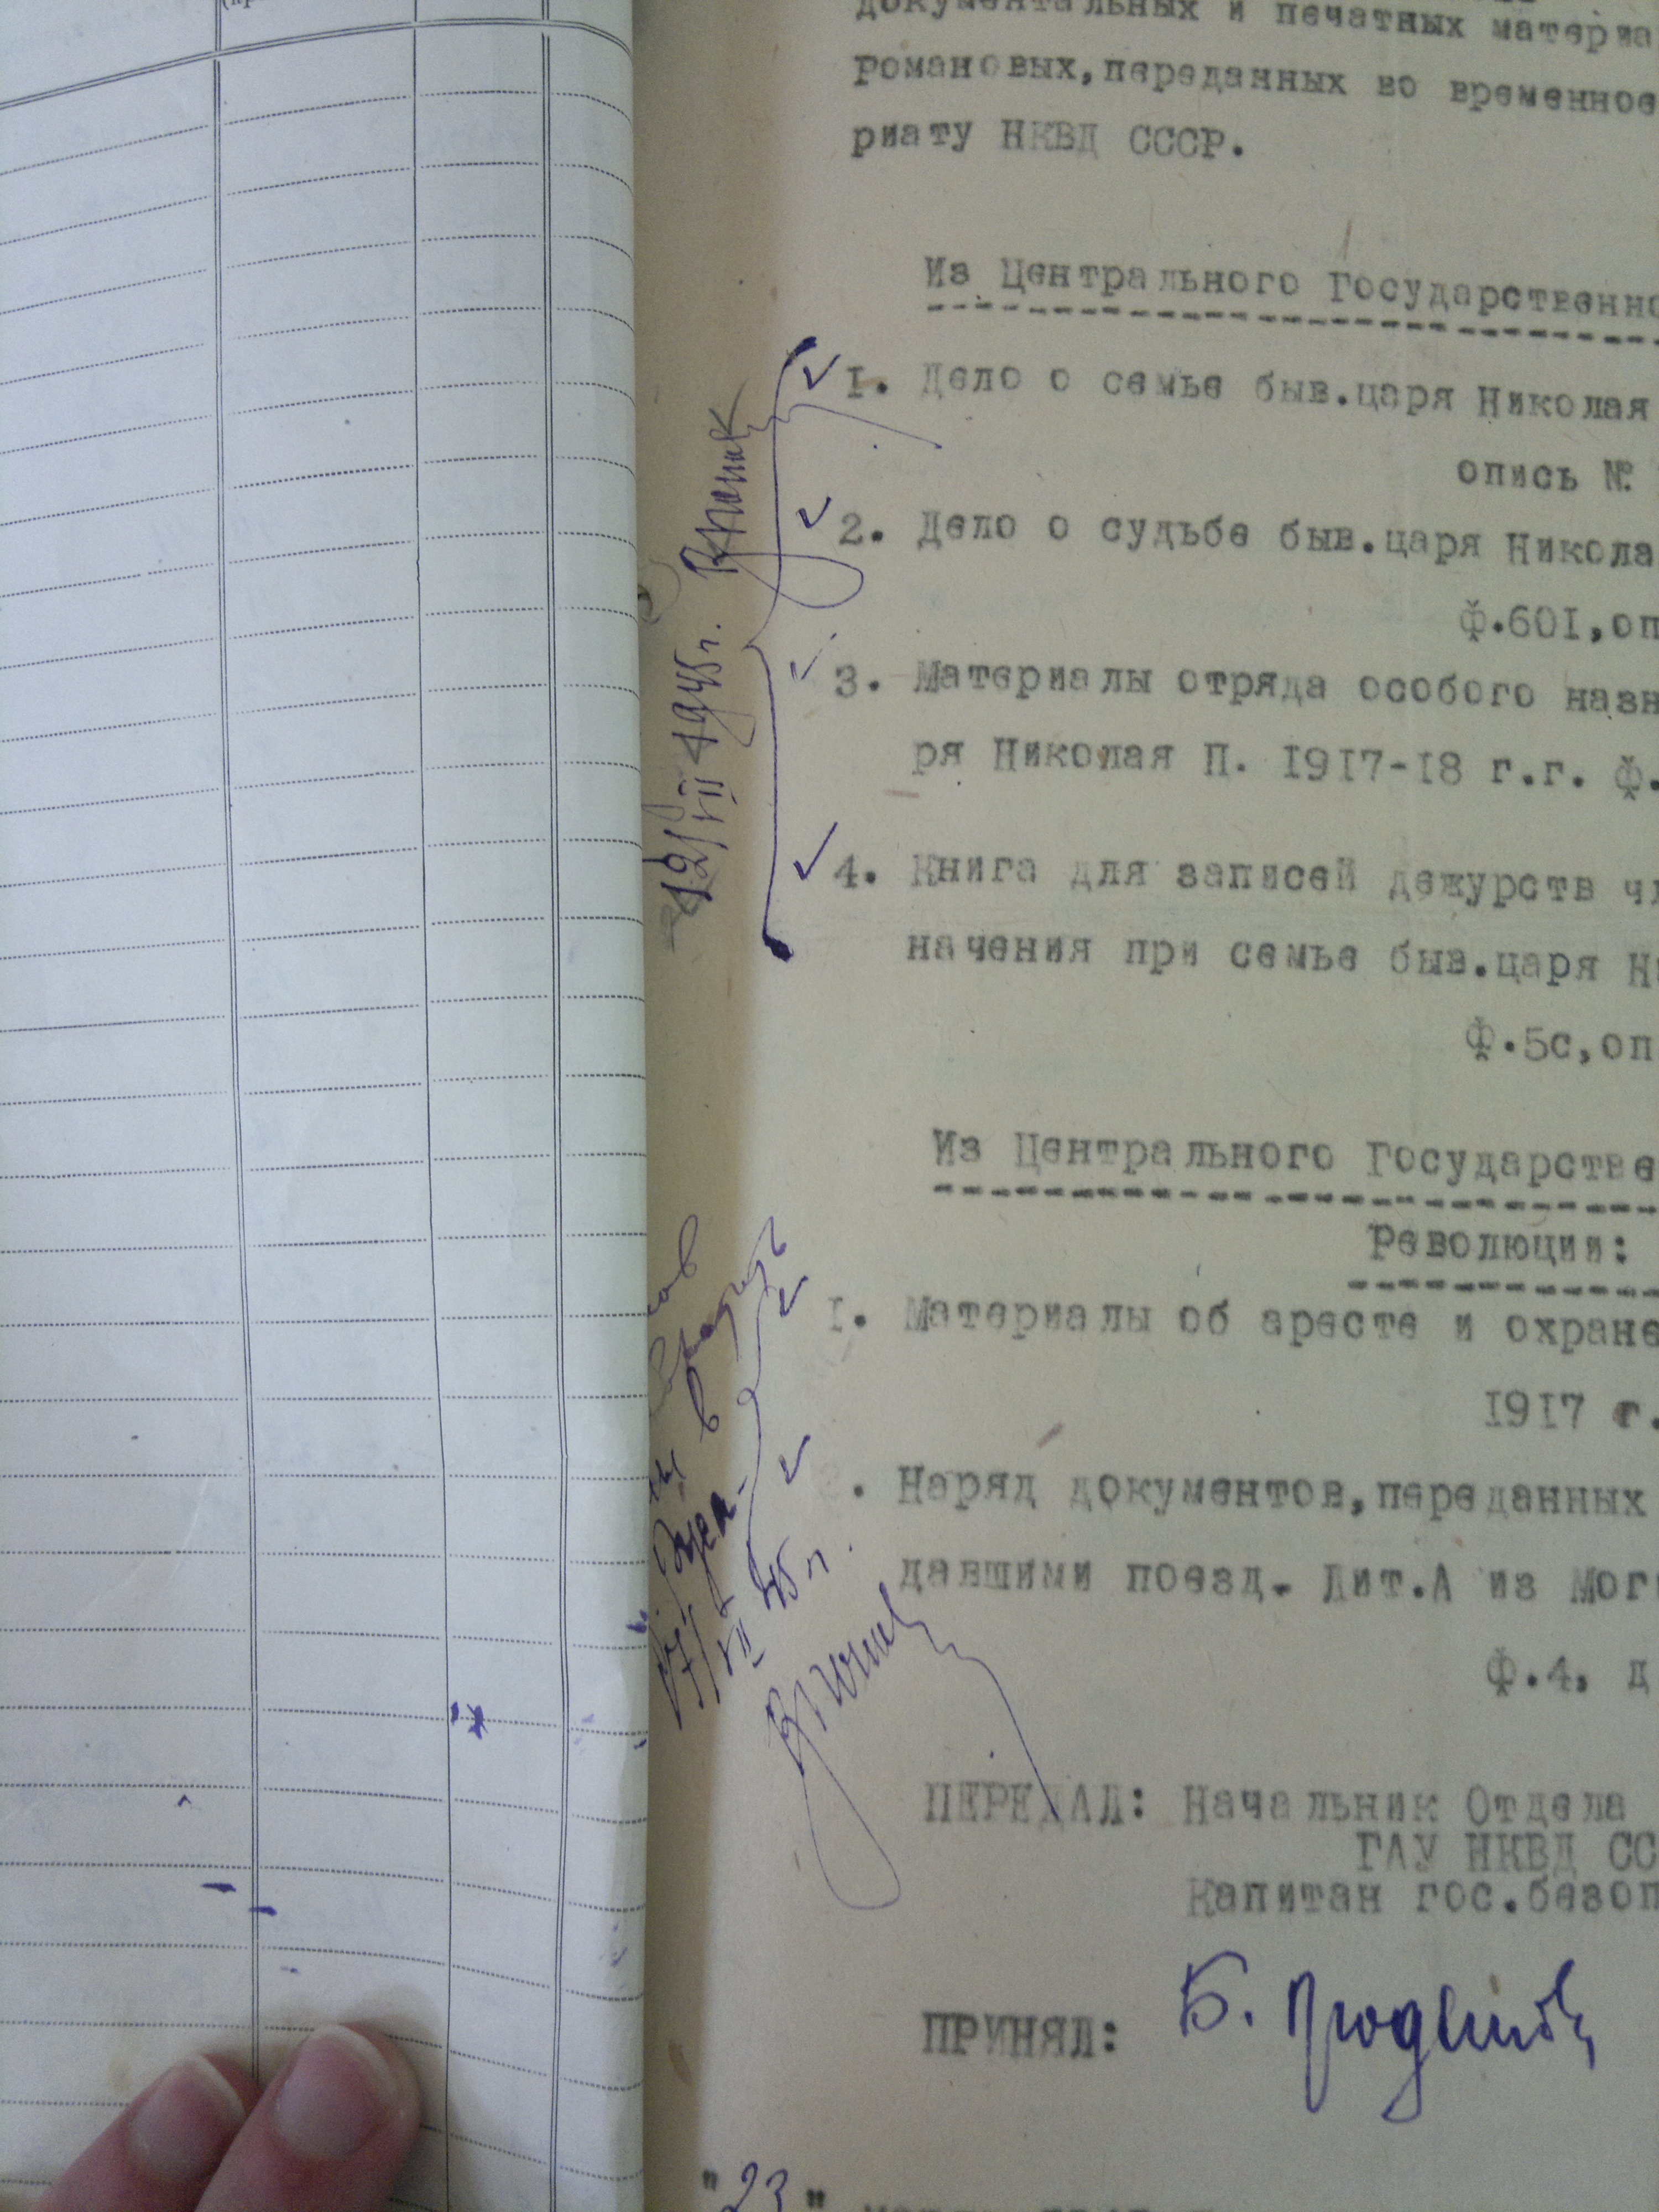 документальных и печатных материа
романовых,переданных во временное
риату НКВД СССР.
Из Центрального Государственно
1. Дело о семье быв.царя Николая
опись №.
2. Дело о судьбе быв.царя Никола
Ф.601,оп
3. Материалы отряда особого назн
ря Николая П. 1917-18 г.г. Ф.
4. Книга для записей дежурств чл
начения при семье быв.царя Н
Ф.5с,оп
21/VII 1945 г.
Из Центрального Государстве
Революции:
I. Материалы об аресте и охране
1917 г.
. Наряд документов,переданных
давшими поезд. Лит.А из Мог
Ф.4, д
VII 45 г.
ПЕРЕДАЛ: Начальник Отдела
ГАУ НКВД СС
Капитан гос.безоп
ПРИНЯЛ: Б.
"23"